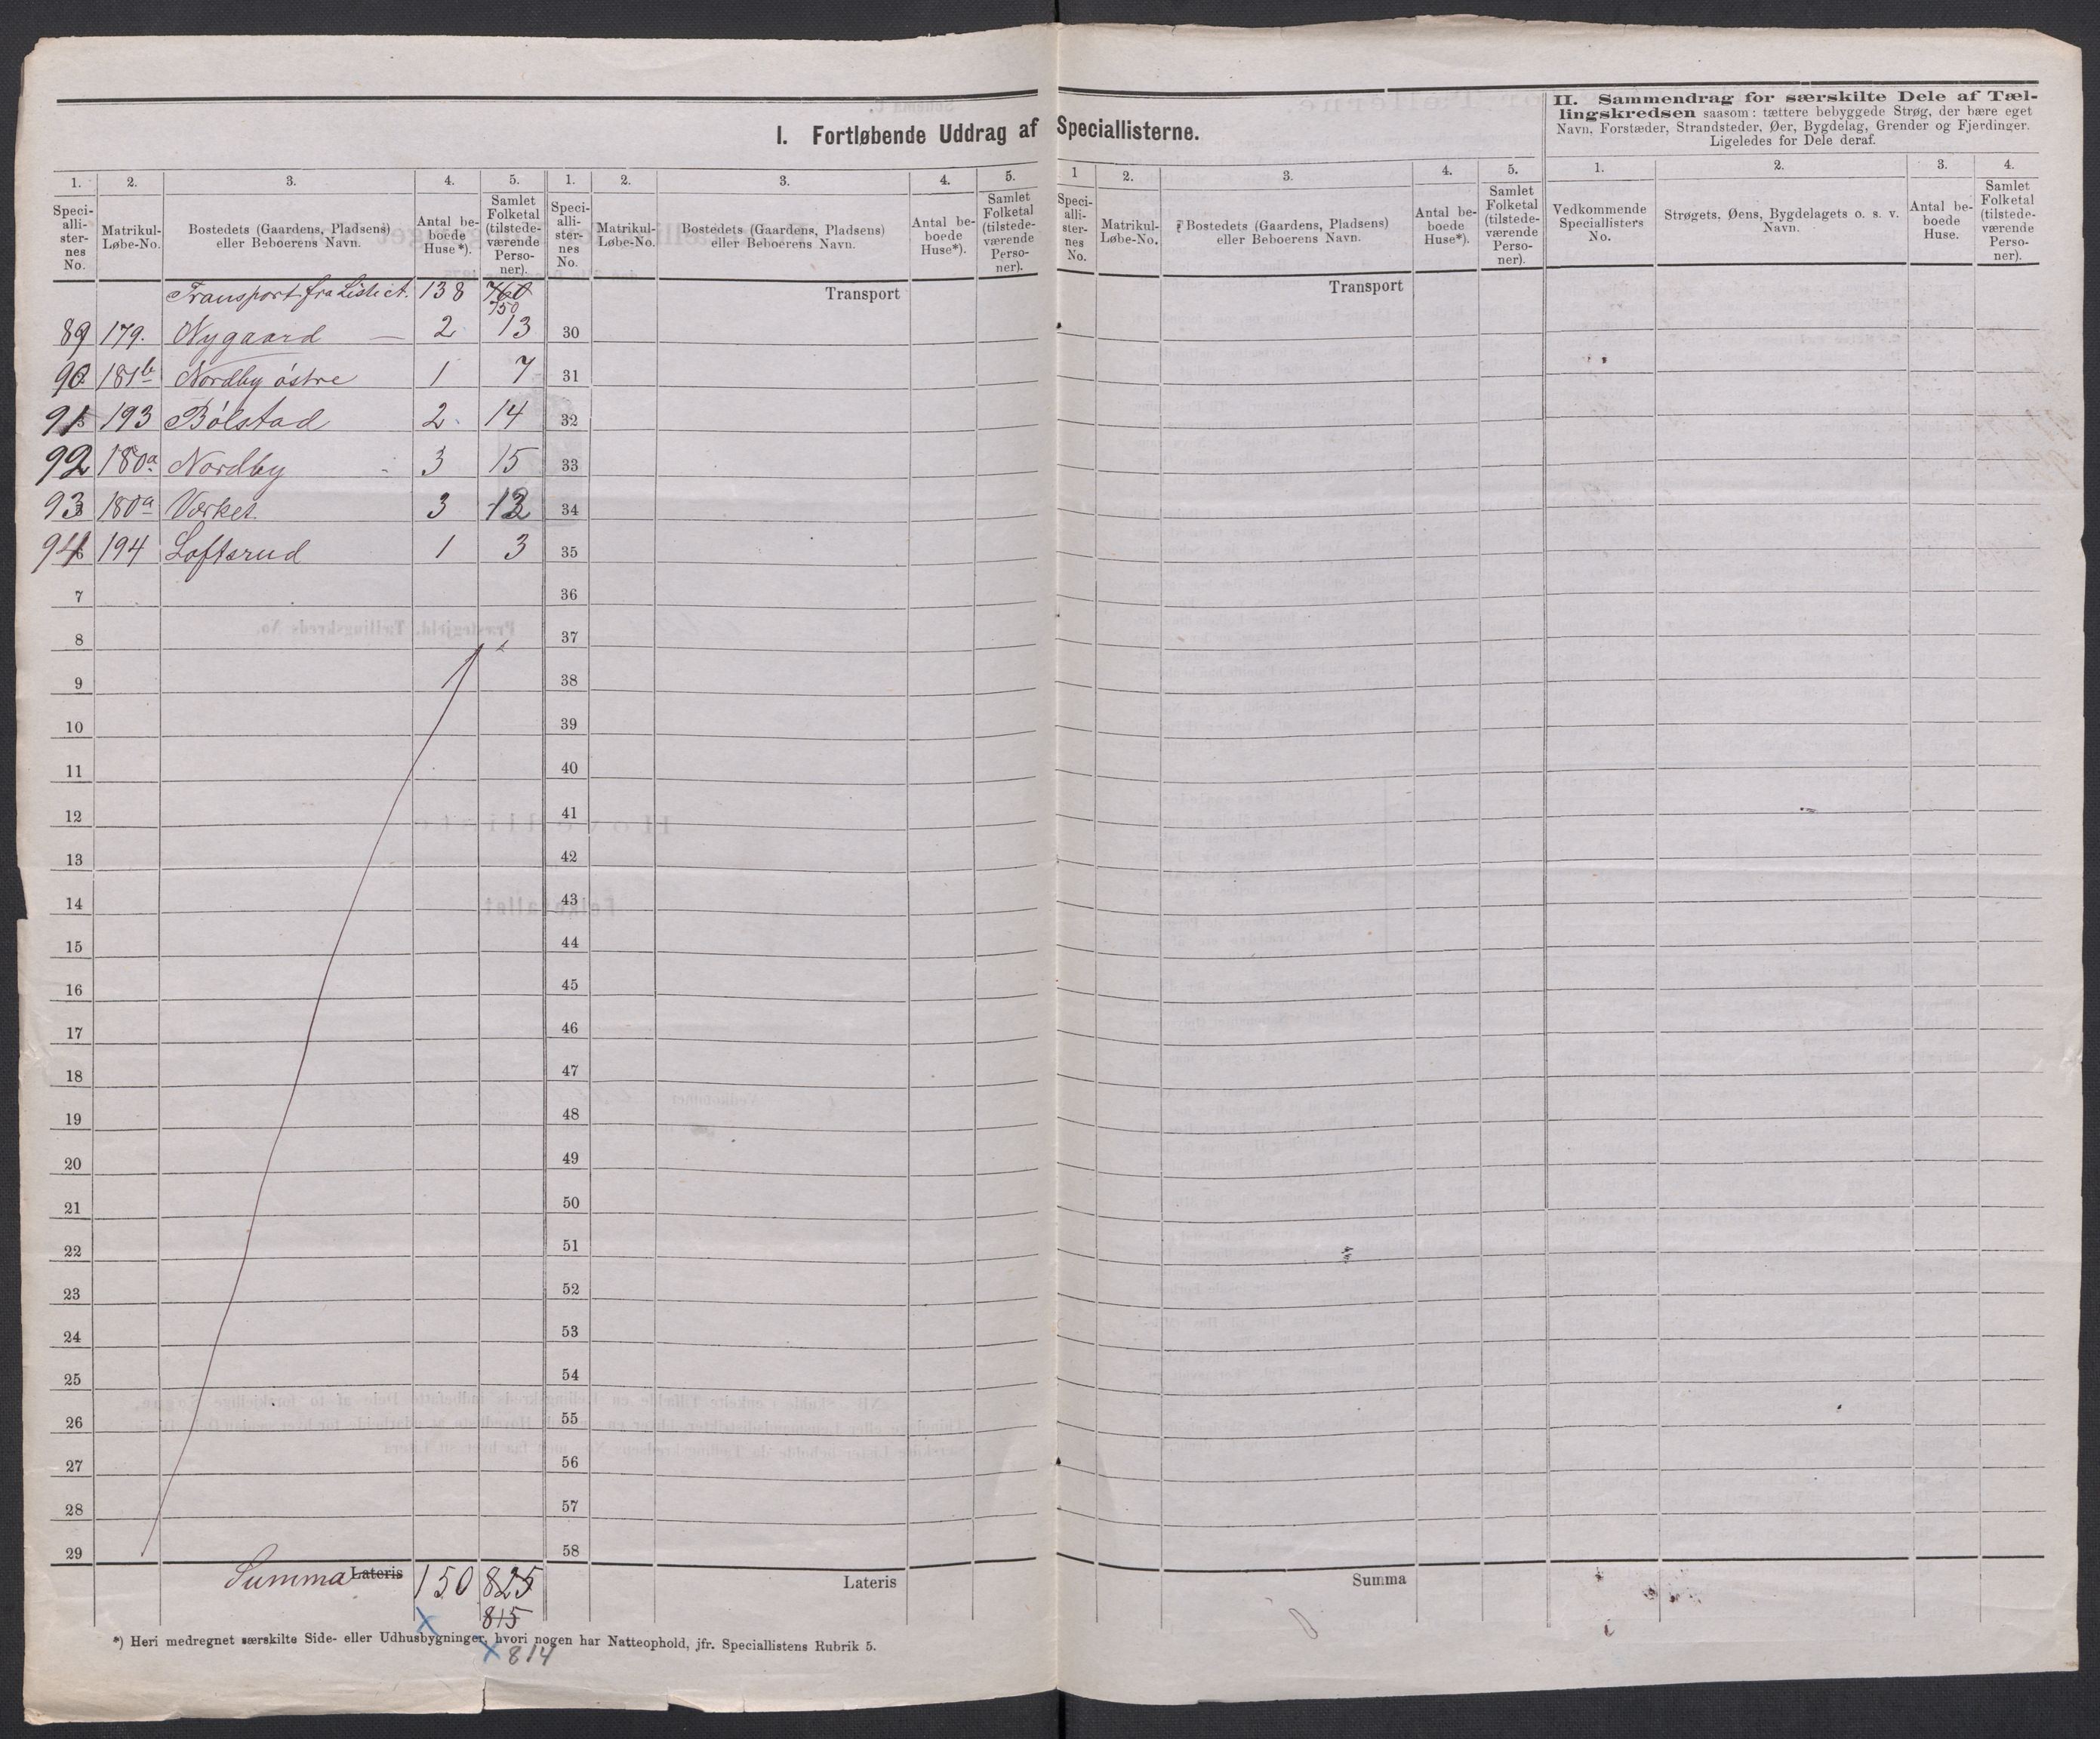 I. Fortløbende Uddrag af Speciallisterne.
II. Sammendrag for særskilte Dele af Tæl-
lingskredsen saasom: tættere bebyggede Strøg, der bære eget
Navn, Forstæder, Strandsteder, Øer, Bygdelag, Grender og Fjerdinger.
Ligeledes for Dele deraf.
1. 2. 3. 4. 5. 1. 2. 3. 4. 5. 1 2. 3. 4. 5. 1. 2. 3. 4.
Speci-alli-ster-nes No. Matrikul-Løbe-No. Bostedets (Gaardens, Pladsens) eller Beboerens Navn. Antal be-boede Huse*). Samlet Folketal (tilstede-værende Perso-ner).
Speci-alli-ster-nes No. Matrikul-Løbe-No. Bostedets (Gaardens, Pladsens) eller Beboerens Navn. Antal be-boede Huse*). Samlet Folketal (tilstede-værende Perso-ner).
Speci-alli-ster-nes No. Matrikul-Løbe-No. Bostedets (Gaardens, Pladsens) eller Beboerens Navn. Antal be-boede Huse*). Samlet Folketal (tilstede-værende Perso-ner).
Vedkommende Speciallisters No. Strøgets, Øens, Bygdelagets o. s. v. Navn. Antal be-boede Huse. Samlet Folketal (tilstede-værende Perso-ner).
Transport fra Liste 138 760 Transport Transport
750
89 179. Nygaard 2 13 30
90 181b Nordby østre 1 7 31
91 193 Bølstad 2 14 32
92 180a Nordby 3 15 33
93 180a Værket 3 12 34
94 194 Loftsrud 1 3 35
7 36
8 37
9 38
10 39
11 40
12 41
13 42
14 43
15 44
16 45
17 46
18 47
19 48
20 49
21 50
22 51
23 52
24 53
25 54
26 55
27 56
28 57
29 58
Summa Lateris 150 825 Lateris Summa
815
*) Heri medregnet særskilte Side- eller Udhusbygninger, hvori nogen har Natteophold, jfr. Speciallistens Rubrik 5.
x 814